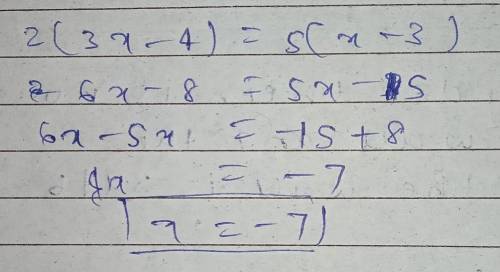 2(3x-4) = 5(x-3)
6x-8 = 5x-15
6x-5x = -15+8
1x = -7
x = -7